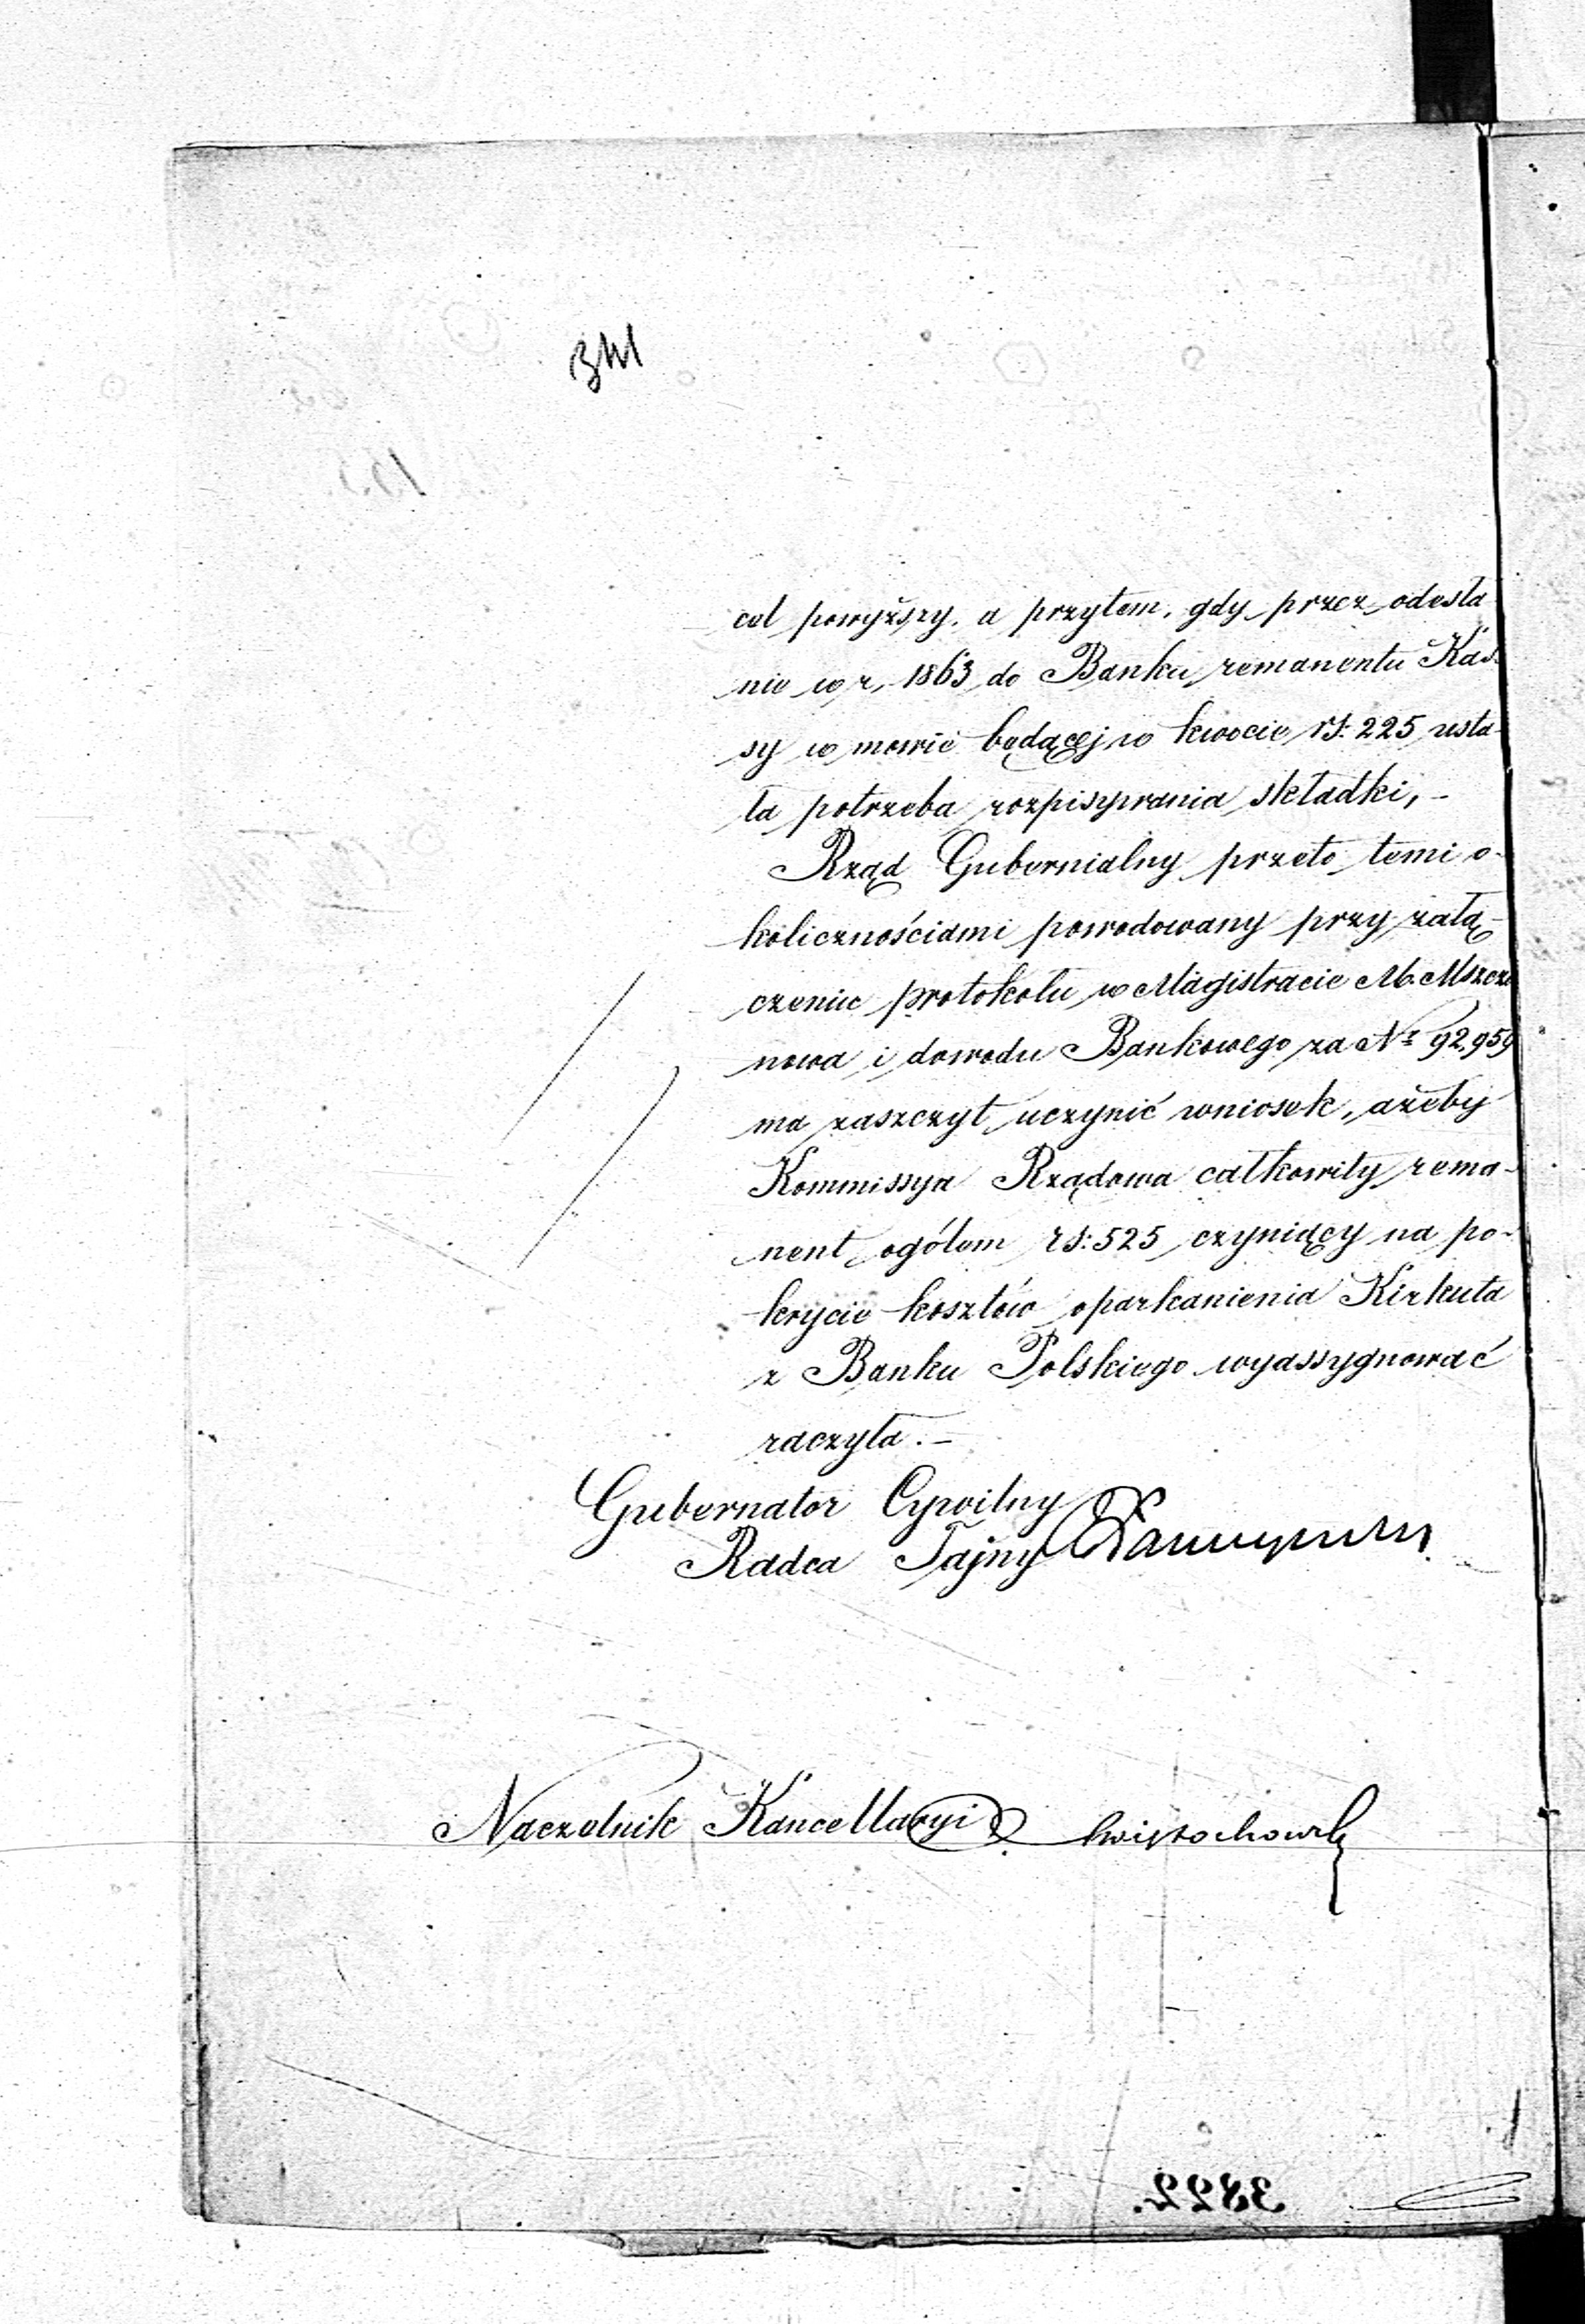 cel powyższy, a przytem, gdy przez odesła-
nie w r. 1863 do Banku remanentu Kas-
sy w mowie będącej w kwocie rs: 225 usta-
ła potrzeba rozpisywania składki, -
Rząd Gubernialny przeto temi o-
kolicznościami powodowany przy załą-
czeniu protokołu w Magistracie M. Mszczo
nowa i dowodu Bankowego za Nr 92,959
ma zaszczyt uczynić wniosek, ażeby
Kommissya Rządowa całkowity rema-
nent ogółem rs: 525 czyniący na po-
krycie kosztów oparkanienia Kirkuta
z Banku Polskiego wyassygnować
raczyła. -
Gubernator Cywilny
Radca Tajny
Naczelnik Kancellaryi
3822.